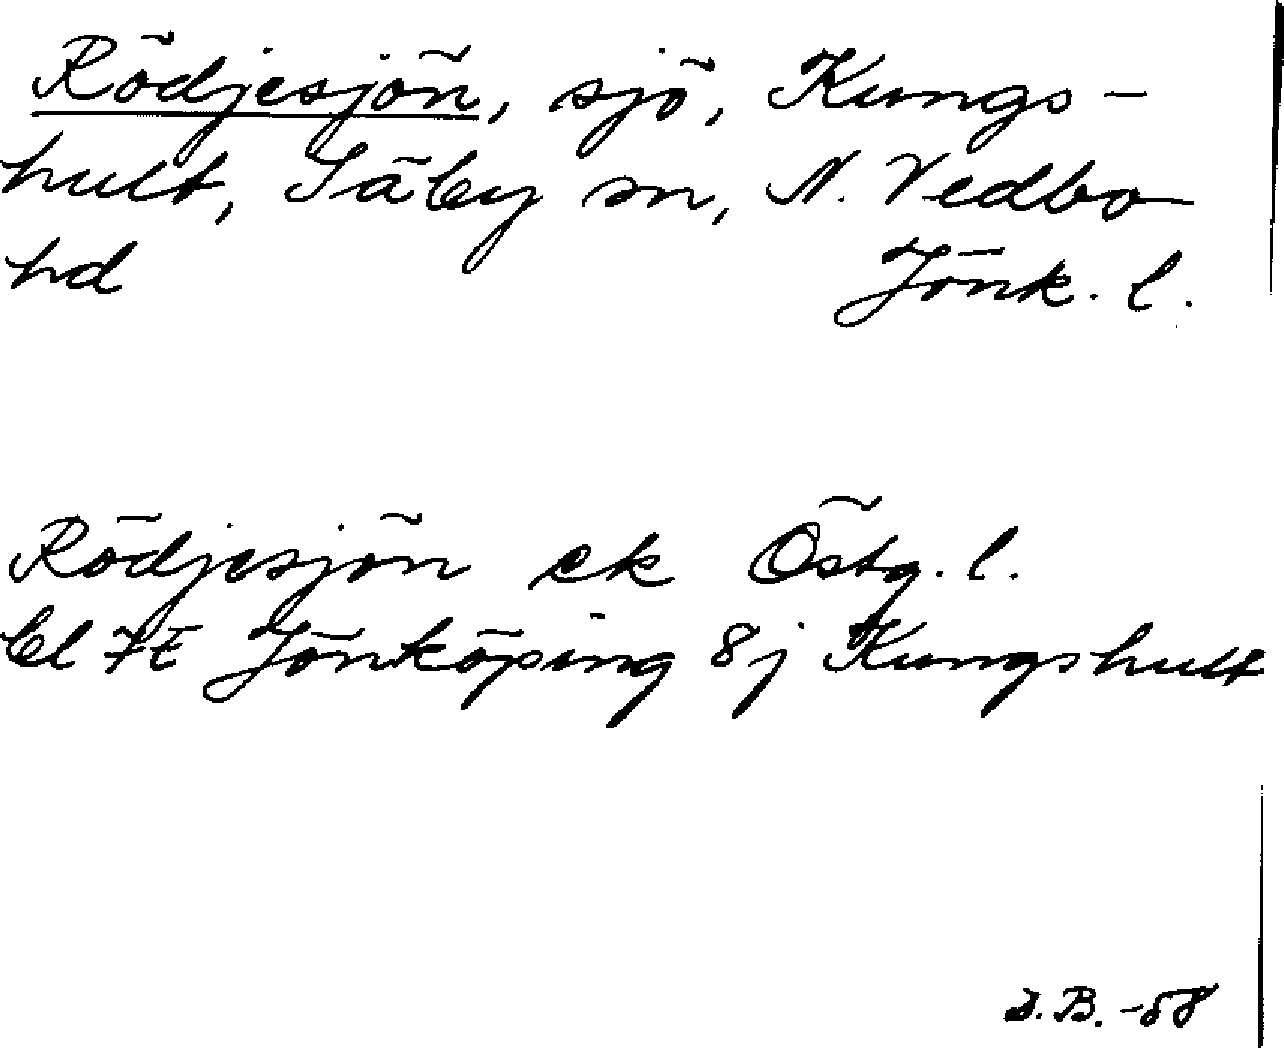 Rödjesjön, sjö, Kungs-
hult, Säby sn, N. Vedbo
hd Jönk. l.
Rödjesjön ek Östg. l.
bl 7E Jönköping 8j Kungshult
B. -58